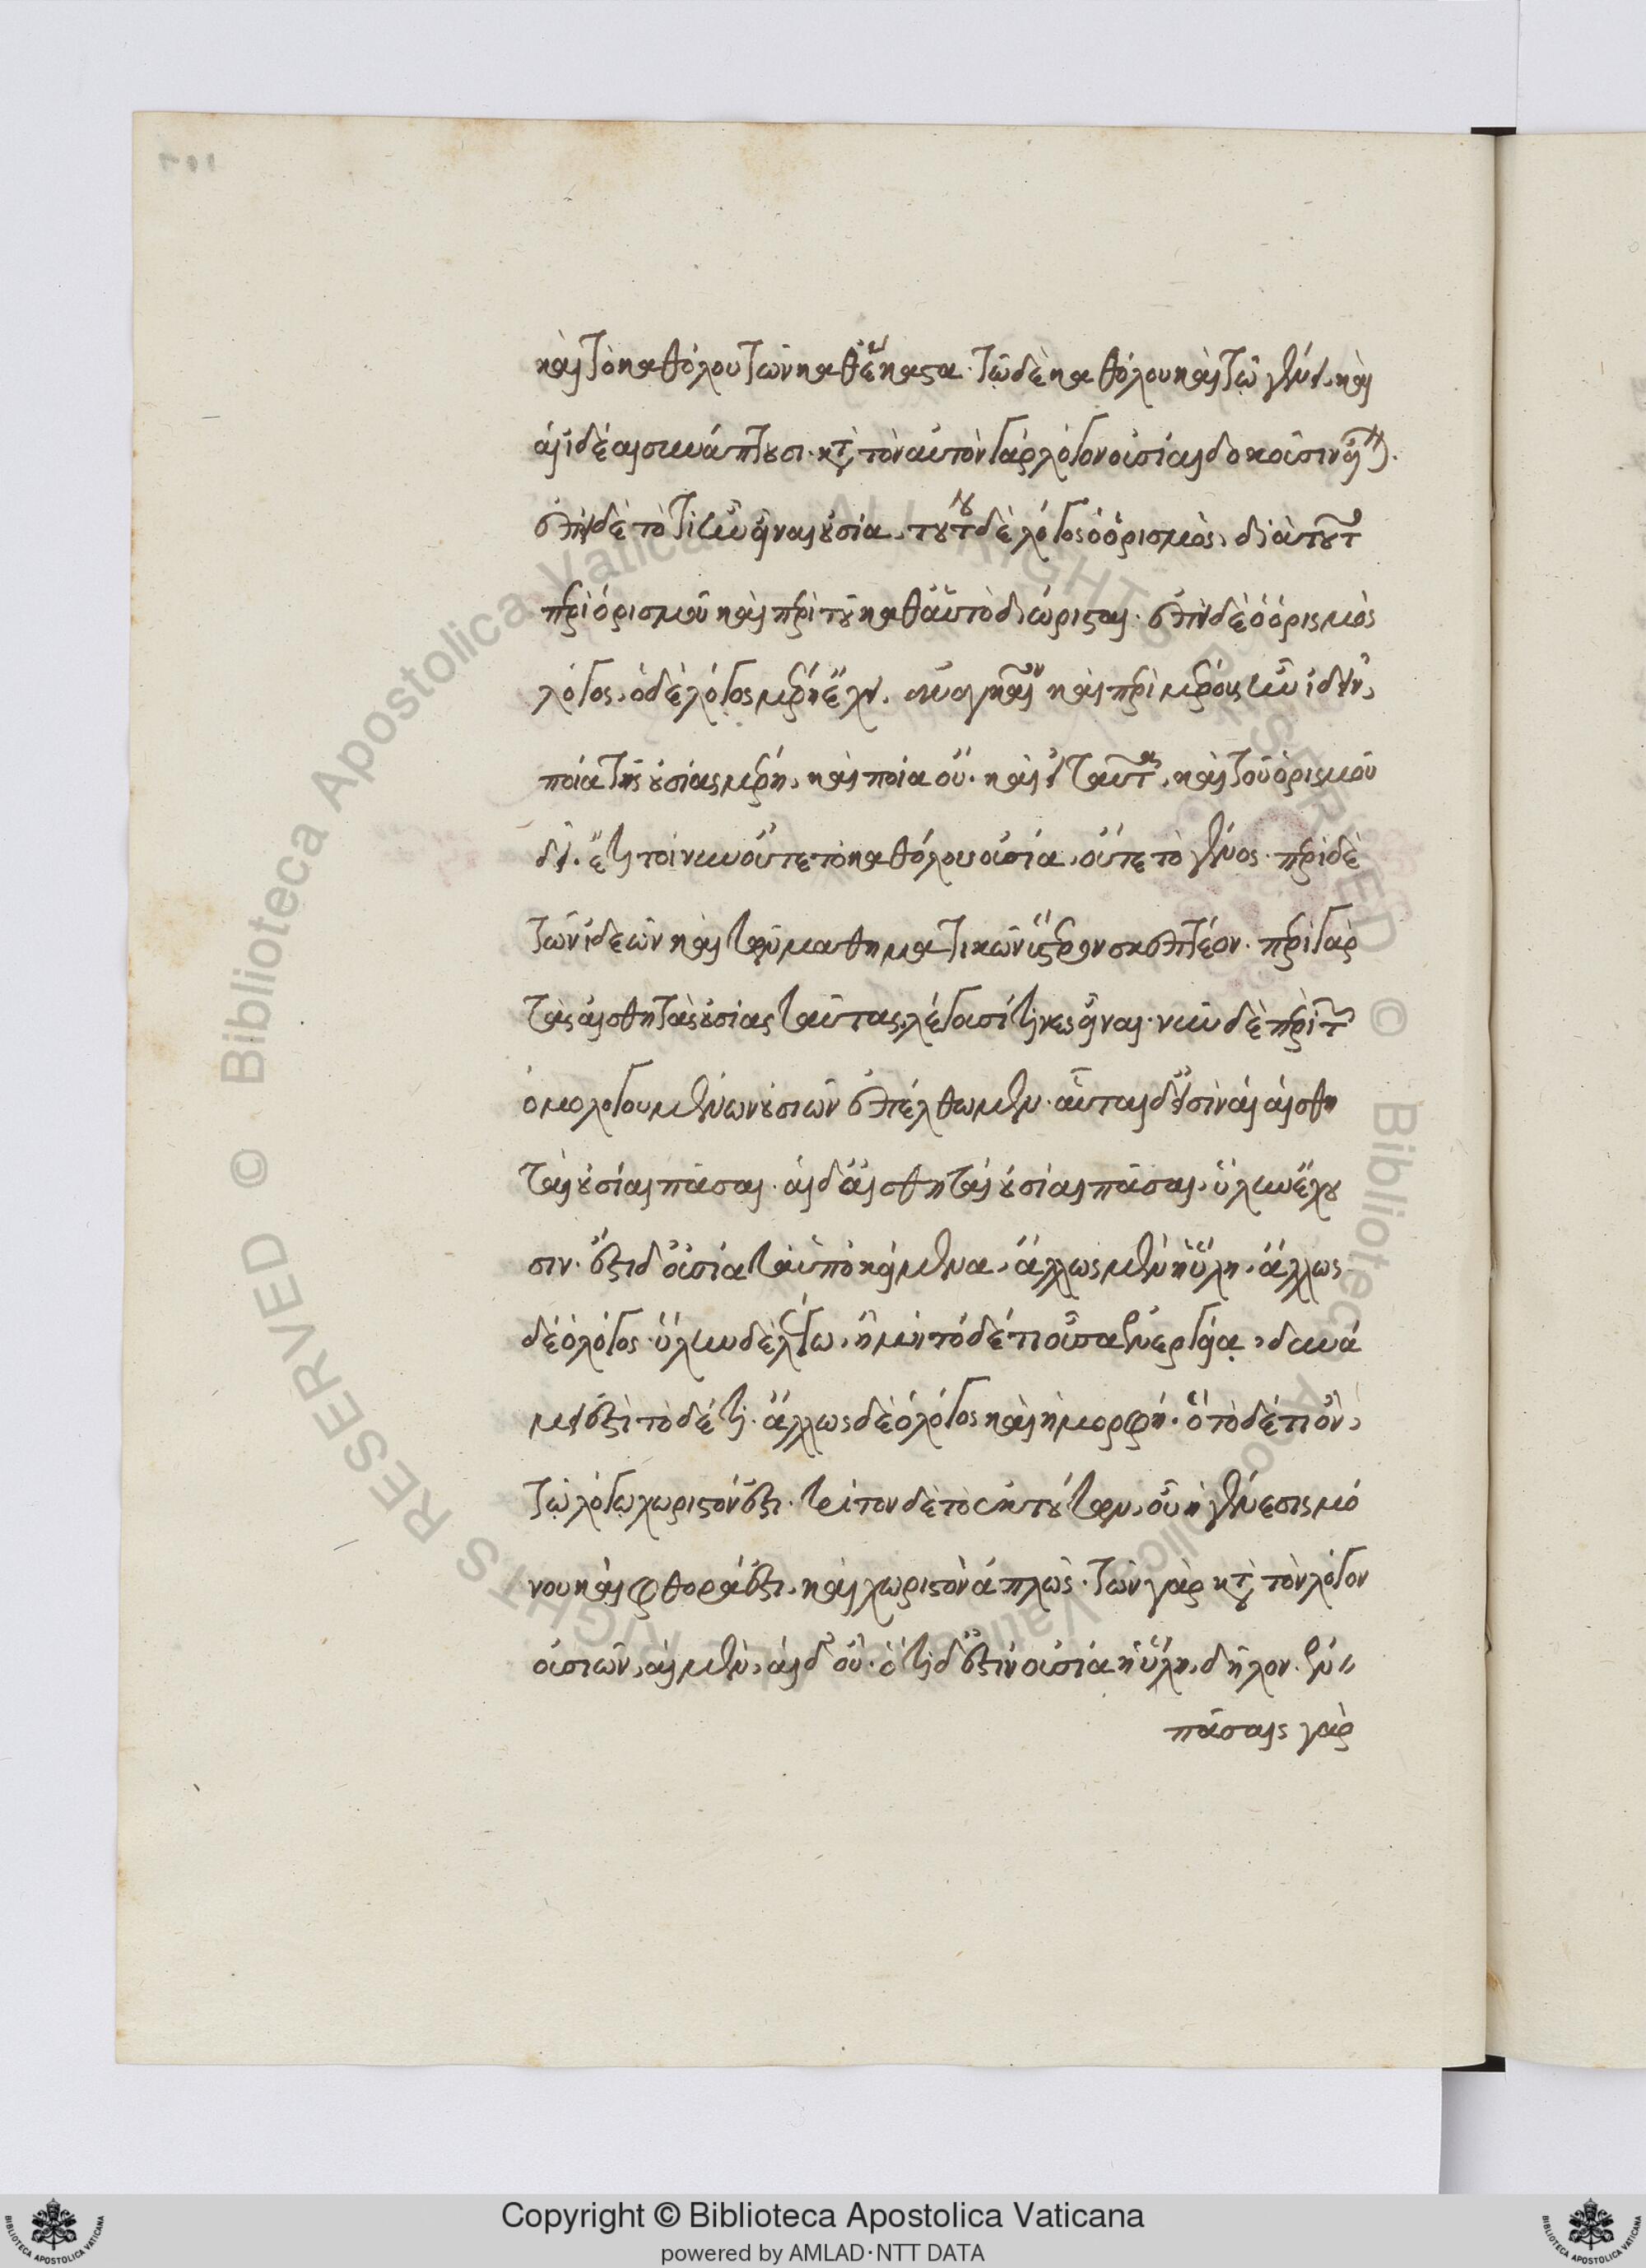 καὶ τὸ καθόλου τῶν καθέκαστα. τῷ δὲ καθόλου καὶ τῷ γένει καὶ
αἱ ἰδέαι συνάπτουσι. κατὰ τὸν αὐτὸν γὰρ λόγον οὐσίαι δοκοῦσιν εἶναι.
ἐπεὶ δὲ τὸ τί ἦν εἶναι οὐσία, τούτου δὲ λόγος ὁ ὁρισμὸς, διὰ τοῦτο
περὶ ὁρισμοῦ καὶ περὶ τοῦ καθ' αὑτὸ διώρισται. ἐπεὶ δὲ ὁ ὁρισμὸς
λόγος, ὁ δὲ λόγος μέρη ἔχει, ἀναγκαῖον καὶ περὶ μέρους ἦν ἰδεῖν,
ποῖα τῆς οὐσίας μέρη, καὶ ποῖα οὔ. καὶ εἰ ταῦτα, καὶ τοῦ ὁρισμοῦ
δεῖ. ἔτι τοίνυν οὔτε τὸ καθόλου οὐσία, οὔτε τὸ γένος. περὶ δὲ
τῶν ἰδεῶν καὶ τῶν μαθηματικῶν ὕστερον σκεπτέον. περὶ γὰρ
τὰς αἰσθητὰς οὐσίας ταύτας λέγουσί τινες εἶναι. νῦν δὲ περὶ τῶν
ὁμολογουμένων οὐσιῶν ἐπέλθωμεν. αὗται δ' εἰσὶν αἱ αἰσθη
ταὶ οὐσίαι πᾶσαι. αἱ δ' αἰσθηταὶ οὐσίαι πᾶσαι, ὕλην ἔχου
σιν. ἔστι δ' οὐσία τὰ ὑποκείμενα, ἄλλως μὲν ἡ ὕλη, ἄλλως
δὲ ὁ λόγος. ὕλην δὲ λέγω, ἣ μὴ τόδέ τι οὖσα ἐνεργείᾳ, δυνά
μει ἐστὶ τόδέ τι. ἄλλως δὲ ὁ λόγος καὶ ἡ μορφή. ὃ τόδέ τι ὂν,
τῷ λόγῳ χωριστόν ἐστι. τρίτον δὲ τὸ ἐκ τούτων, οὗ ἡ γένεσις μό
νου καὶ φθορά ἐστι, καὶ χωριστὸν ἁπλῶς. τῶν γὰρ κατὰ τὸν λόγον
οὐσιῶν, αἱ μὲν, αἱ δ' οὔ. ὅτι δ' ἐστὶν οὐσία ἡ ὕλη, δῆλον. ἐν
πάσαις γὰρ
Copyright © Biblioteca Apostolica Vaticana
powered by AMLAD·NTT DATA